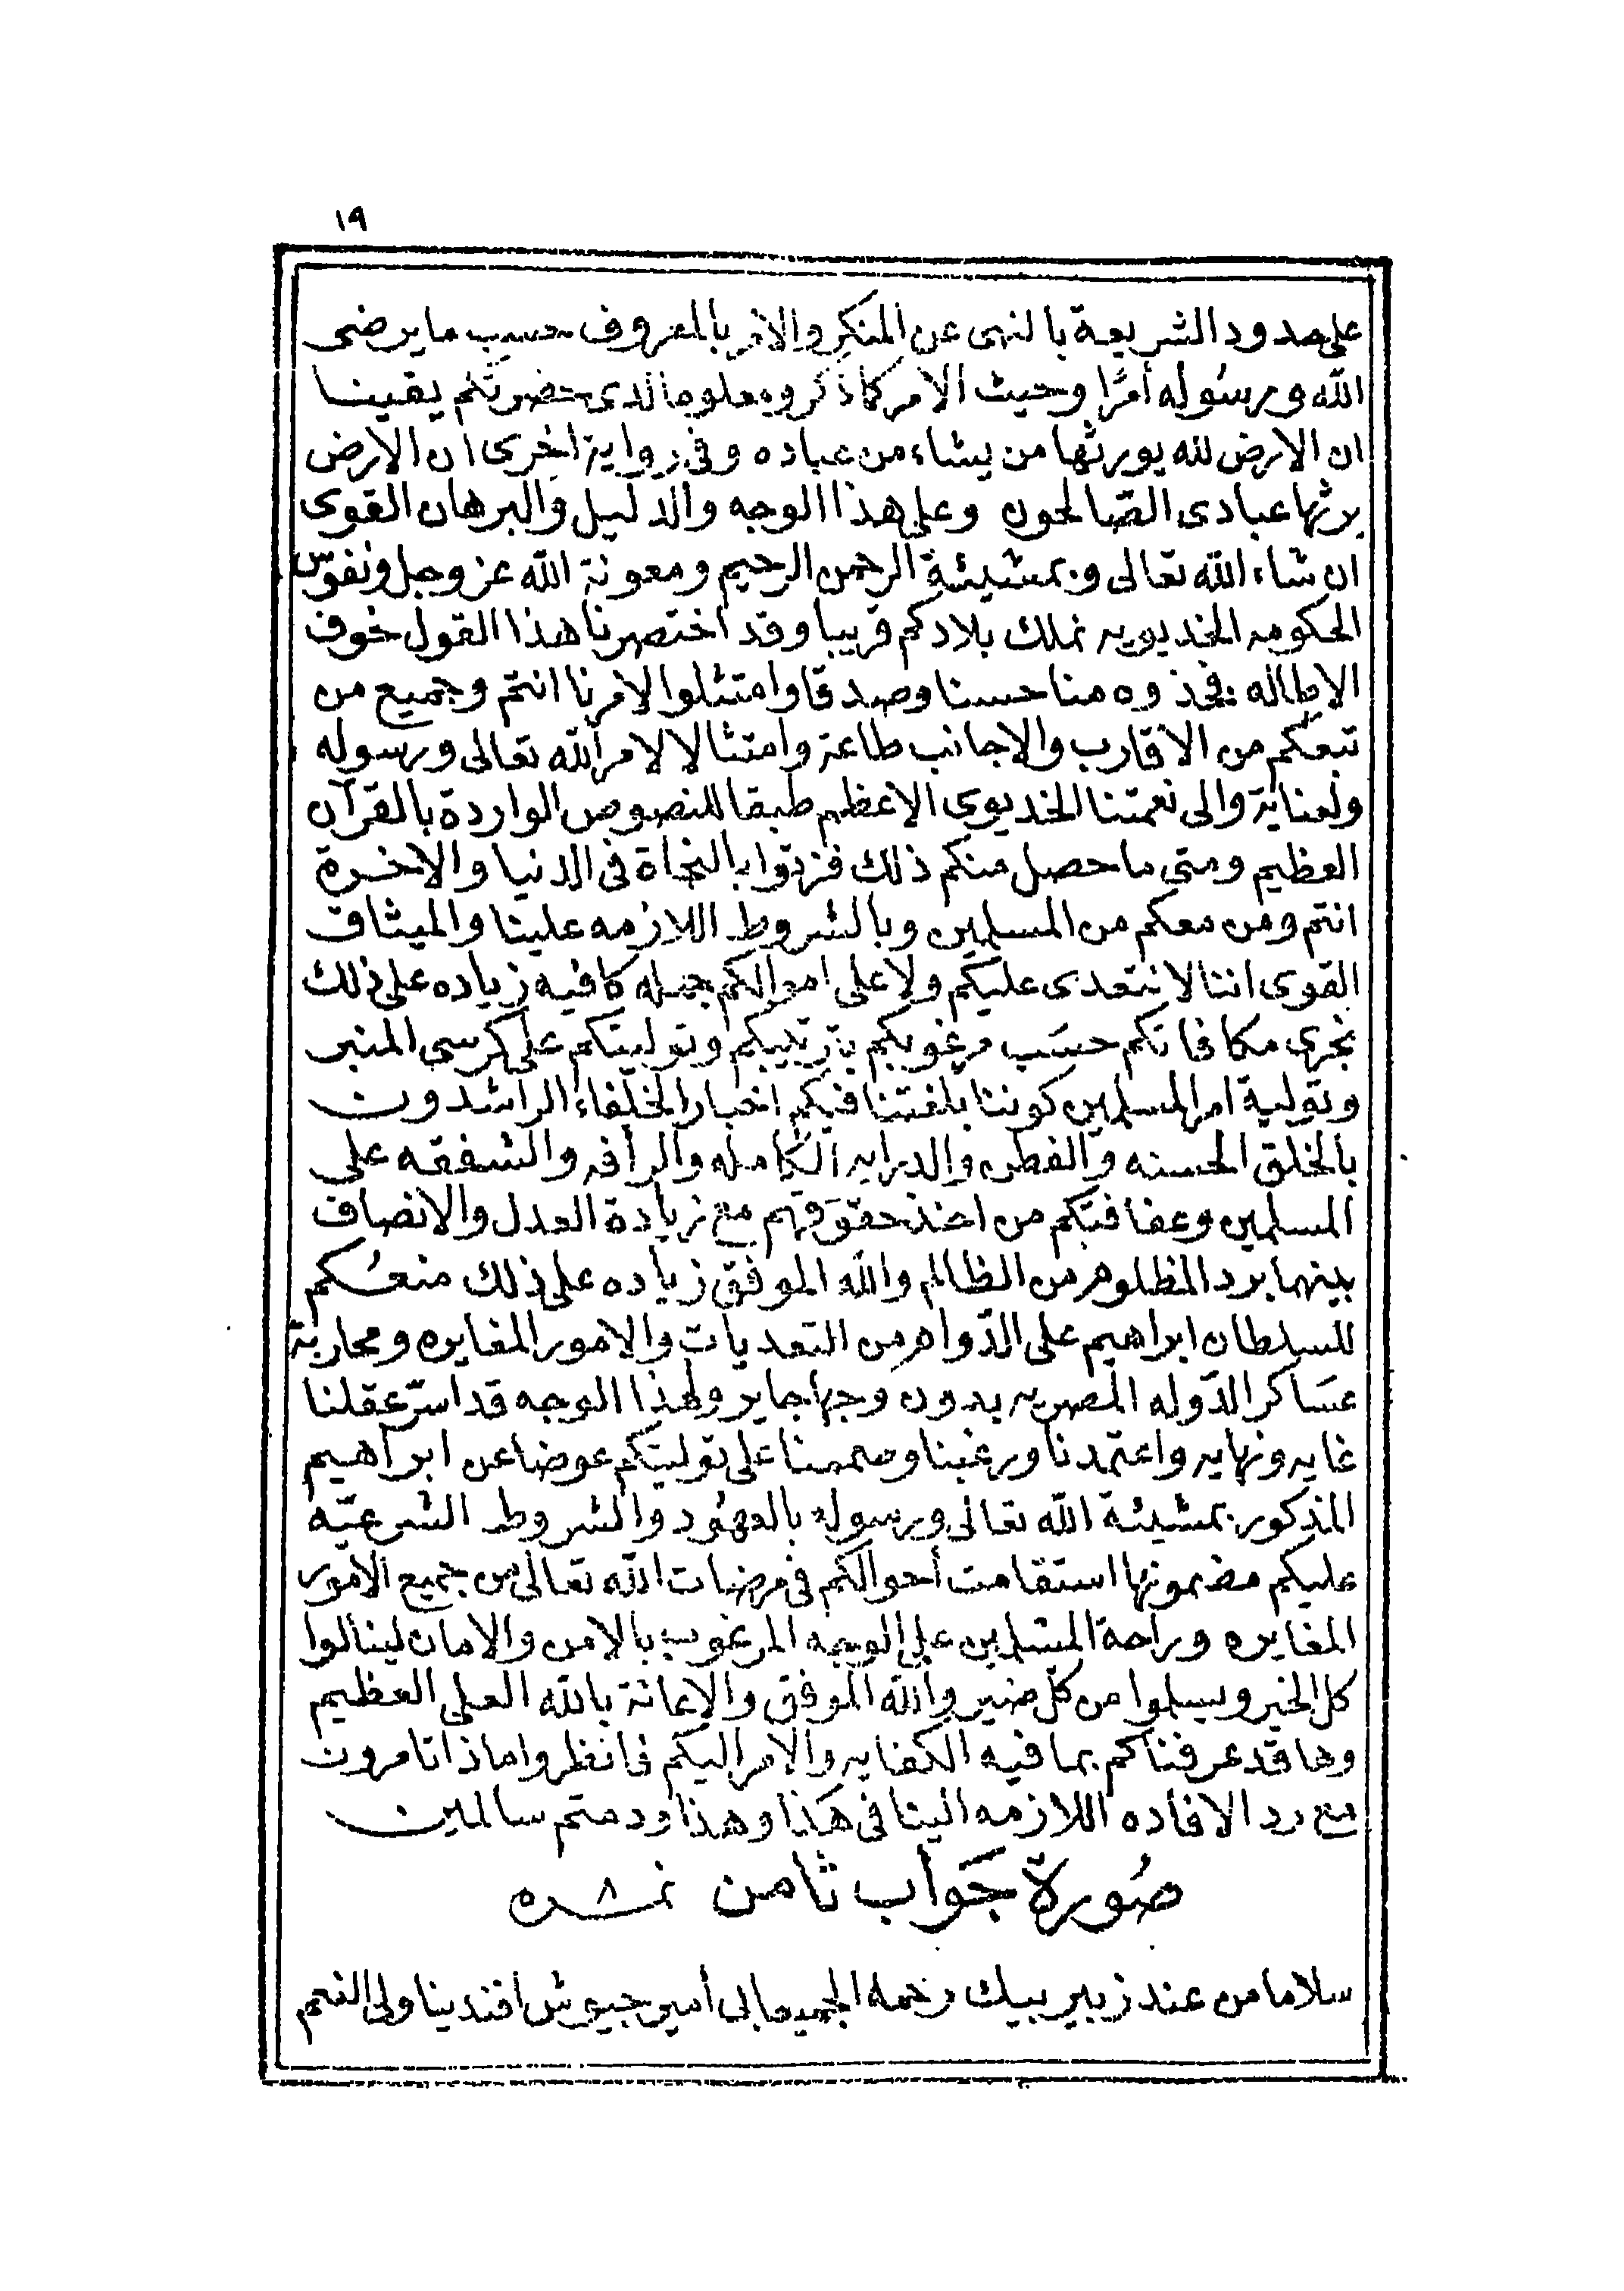 ١٩
على حدود الشريعة بالنهى عن المنكر والامر بالمعروف حسب ما يرضى
الله ورسوله أمرًا وحيث الامر كما ذكر ومعلوما لدى حضرتكم يقينا
ان الارض لله يورثها من يشاء من عباده وفى رواية اخرى ان الارض
يرثها عبادى الصّالحون وعلى هذا الوجه والدليل والبرهان القوى
ان شاء الله تعالى وبمشيئة الرحمن الرحيم ومعونة الله عز وجل ونفوس
الحكومه الخديويه نملك بلادكم قريبا وقد اختصرنا هذا القول خوف
الاطاله فخذوه منا حسنا وصدقا وامتثلوا لامرنا انتم وجميع من
تبعكم من الاقارب والاجانب طاعة وامتثالا لامر الله تعالى ورسوله
ولعناية والى نعمتنا الخديوى الاعظم طبقا للنصوص الواردة بالقرآن
العظيم ومتى ما حصل منكم ذلك فزتوا بالنجاة فى الدنيا والاخرة
انتم ومن معكم من المسلمين وبالشروط اللازمه علينا والميثاق
القوى اننا لا نتعدى عليكم ولا على اموالكم جمله كافيه زياده على ذلك
نجرى مكافاتكم حسَب مرغوبكم بترتيبكم وتوليتكم على كرسى المنبر
وتولية امر المسلمين كوننا بلغتنا فيكم اخبار الخلفاء الراشدون
بالخلق الحسنه والفطن والدرايه الكامله والرأفه والشفقه على
المسلمين وعفافتكم من اخذ حقوقهم مع زيادة العدل والانصاف
بينهما برد المظلوم من الظالم والله الموفق زياده على ذلك منعُكم
للسلطان ابراهيم على الدّوام من التعديات والامور المغايره ومحاربة
عسَاكر الدّوله المصريه بدون وجها جايز ولهذا الوجه قد استرّ عقلنا
غايه ونهايه واعتمدنا ورغبنا وصممنا على توليتكم عوضا عن ابراهيم
المذكور بمشيئة الله تعالى ورسوله بالعهُود والشروط الشرعيّه
عليكم مضمونها استقامت أحوالكم فى مرضات الله تعالى من جميع الامور
المغايره وراحة المسلمين على الوجه المرغوب بالامن والامان لينالوا
كل الخير ويسلموا من كلّ ضير والله الموفق والاعانة بالله العلى العظيم
وها قد عرفناكم بما فيه الكفايه والامر اليكم فانظروا ماذا تامرون
مع رد الافاده اللازمه الينا فى هكذا وهذا ودمتم سالمين
صُورة جَوَاب ثامن نمــ٨ــره
سلاما من عند زبير بيك رحمه الى أمير جيوش أفندينا ولى النعم